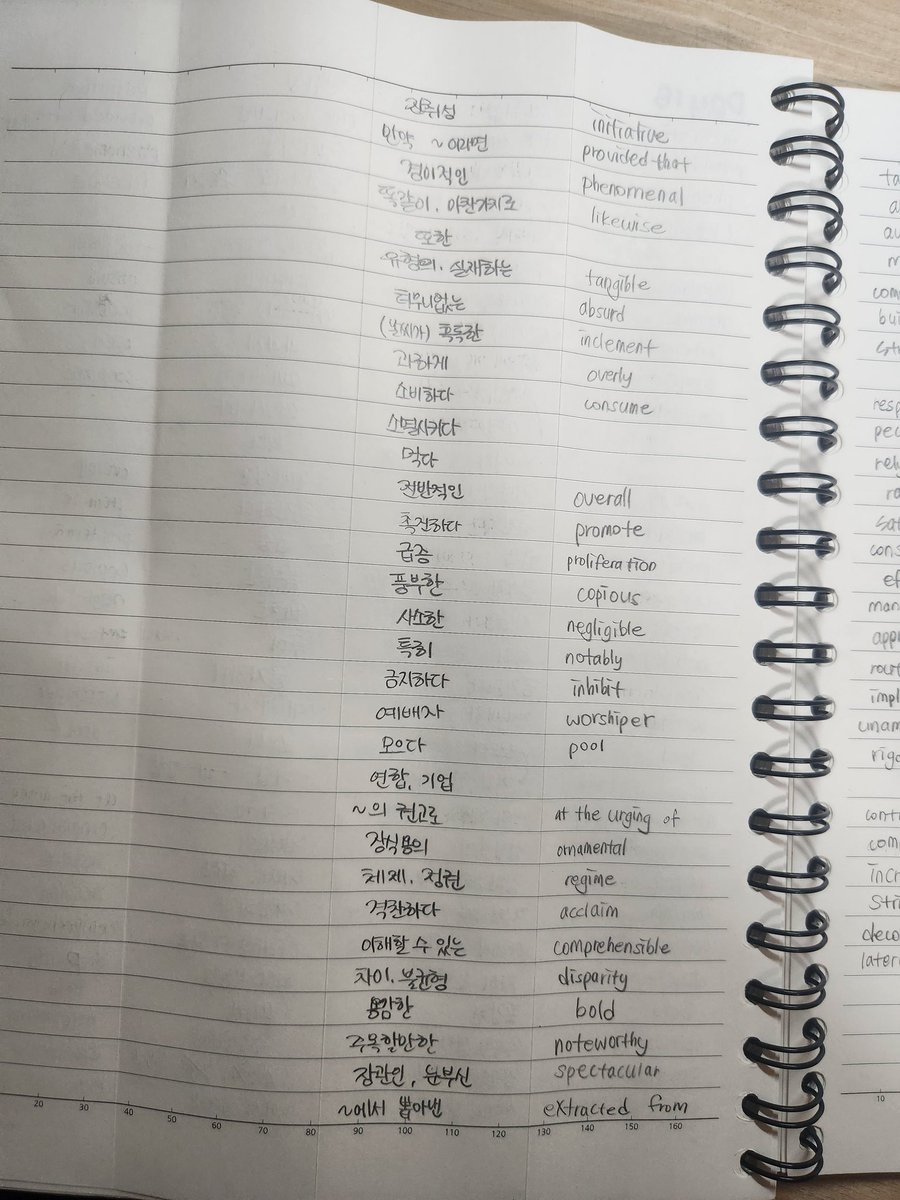 진취성 initiative
만약 ~이라면 provided that
경이적인 phenomenal
똑같이, 마찬가지로 likewise
또한
유형의, 실재하는 tangible
터무니없는 absurd
(날씨가) 혹독한 inclement
과하게 overly
소비하다 consume
소멸시키다
먹다
전반적인 overall
촉진하다 promote
급증 proliferation
풍부한 copious
사소한 negligible
특히 notably
금지하다 inhibit
예배자 worshiper
모으다 pool
연합, 기업
~의 권고로 at the urging of
장식용의 ornamental
체제, 정권 regime
격찬하다 acclaim
이해할 수 있는 comprehensible
차이, 불균형 disparity
용감한 bold
주목할만한 noteworthy
장관인, 눈부신 spectacular
~에서 뽑아낸 extracted from
20 30 40 50 60 70 80 90 100 110 120 130 140 150 160
10